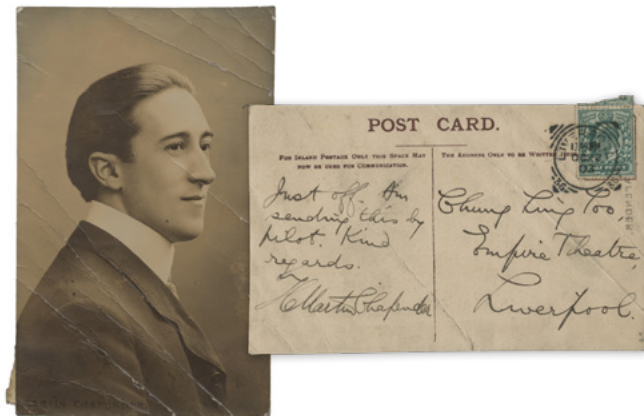 MARTIN CHAPENDER
POST CARD.
FOR INLAND POSTAGE ONLY THIS SPACE MAY
NOW BE USED FOR COMMUNICATION.
THE ADDRESS ONLY TO BE WRITTEN
Just off. Am
sending this by
pilot. Kind
regards.
Martin Chapender
Chung Ling Soo,
Empire Theatre,
Liverpool.